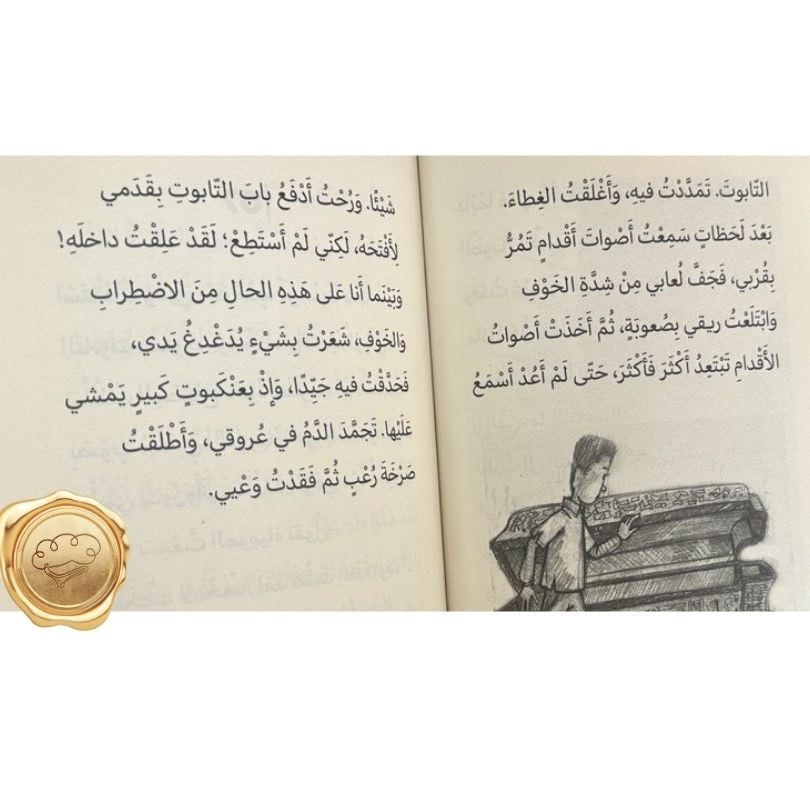 التّابوتَ. تَمَدَّدْتُ فيهِ، وَأَغْلَقْتُ الغِطاءَ.
بَعْدَ لَحَظاتٍ سَمِعْتُ أَصْواتَ أَقْدامٍ تَمُرُّ
بِقُرْبي، فَجَفَّ لُعابي مِنْ شِدَّةِ الخَوْفِ
وَابْتَلَعْتُ ريقي بِصُعوبَةٍ، ثُمَّ أَخَذَتْ أَصْواتُ
الأَقْدامِ تَبْتَعِدُ أَكْثَرَ فَأَكْثَرَ، حَتّى لَمْ أَعُدْ أَسْمَعُ
شَيْئًا. وَرُحْتُ أَدْفَعُ بابَ التّابوتِ بِقَدَمي
لِأَفْتَحَهُ، لَكِنّي لَمْ أَسْتَطِعْ؛ لَقَدْ عَلِقْتُ داخلَهِ!
وَبَيْنَما أَنا عَلى هَذِهِ الحالِ مِنَ الاضْطِرابِ
وَالخَوْفِ، شَعَرْتُ بِشَيْءٍ يُدَغْدِغُ يَدي،
فَحَدَّقْتُ فيهِ جَيِّدًا، وَإِذْ بِعَنْكَبوتٍ كَبيرٍ يَمْشي
عَلَيْها. تَجَمَّدَ الدَّمُ في عُروقي، وَأَطْلَقْتُ
صَرْخَةَ رُعْبٍ ثُمَّ فَقَدْتُ وَعْيي.